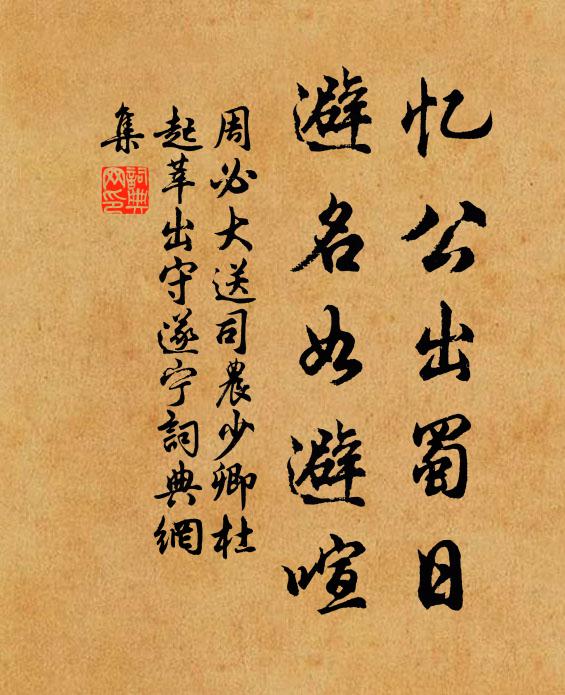 忆公出蜀日
避名如避喧
周必大送司農少卿杜
起莘出守遂宁詞典網
集
詞典网印